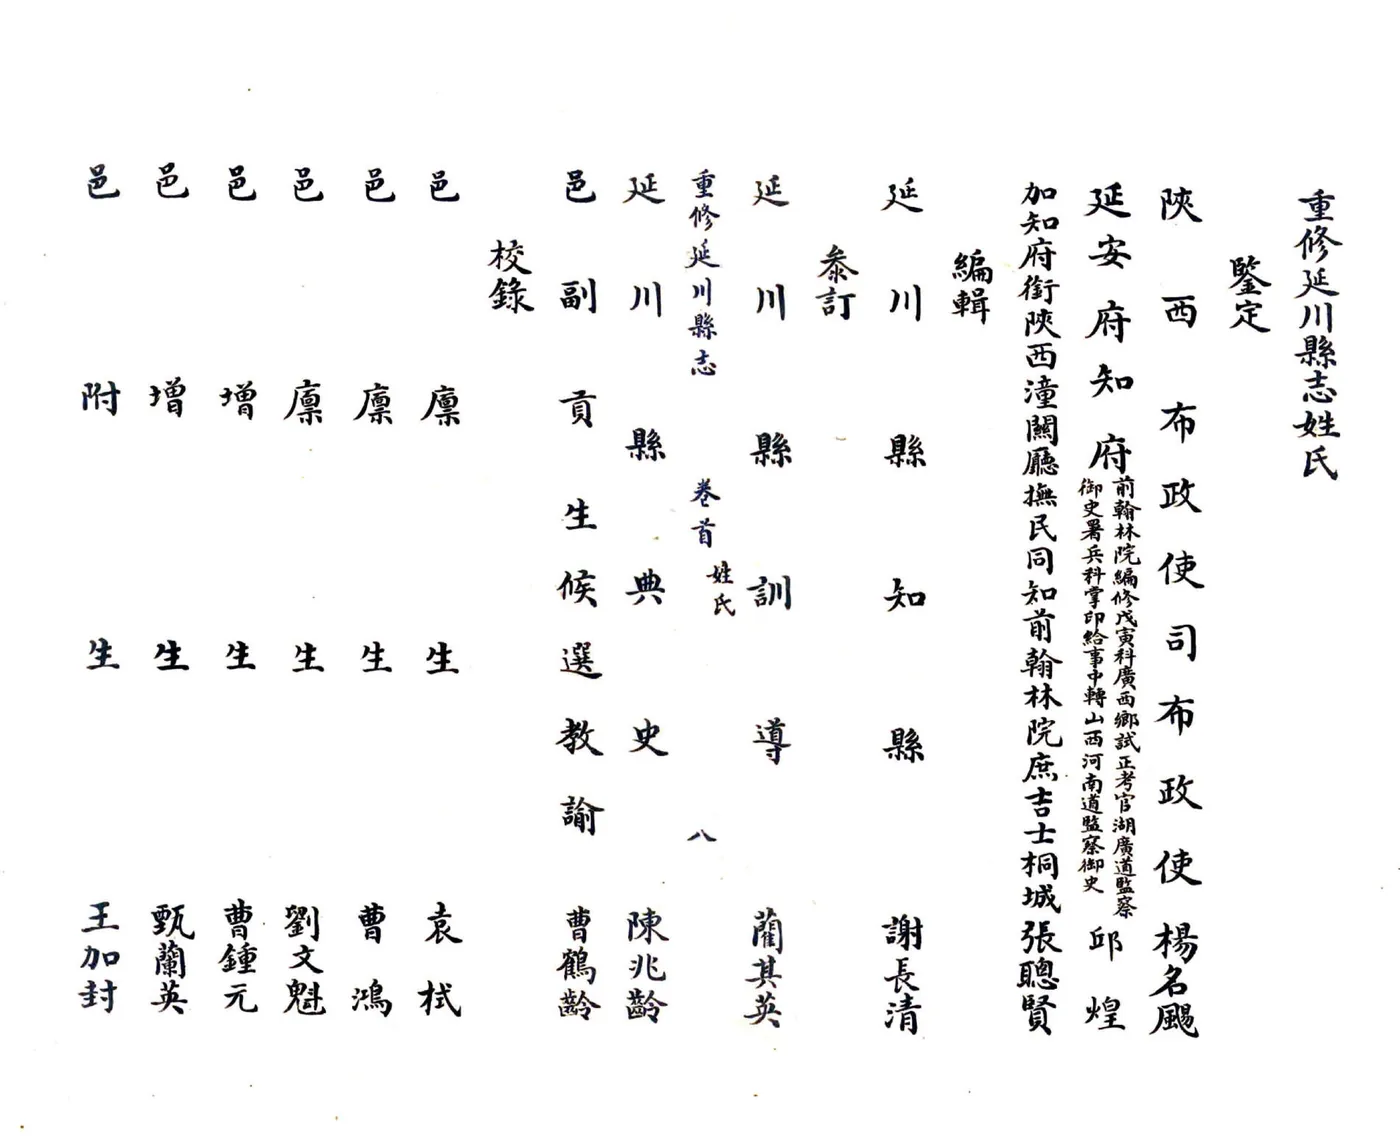 重修延川縣志姓氏
鑒定
陝西布政使司布政使楊名颺
延安府知府前翰林院編修戊寅科廣西鄉試正考官湖廣道監察
御史署兵科掌印給事中轉山西河南道監察御史邱煌
加知府銜陝西潼關廳撫民同知前翰林院庶吉士桐城張聰賢
編輯
延川縣知縣謝長清
叅訂
延川縣訓導藺其英
重修延川縣志 卷首 姓氏 八
延川縣典史陳兆齡
邑副貢生候選教諭曹鶴齡
校錄
邑廪生袁栻
邑廪生曹鴻
邑廪生劉文魁
邑增生曹鍾元
邑增生甄蘭英
邑附生王加封